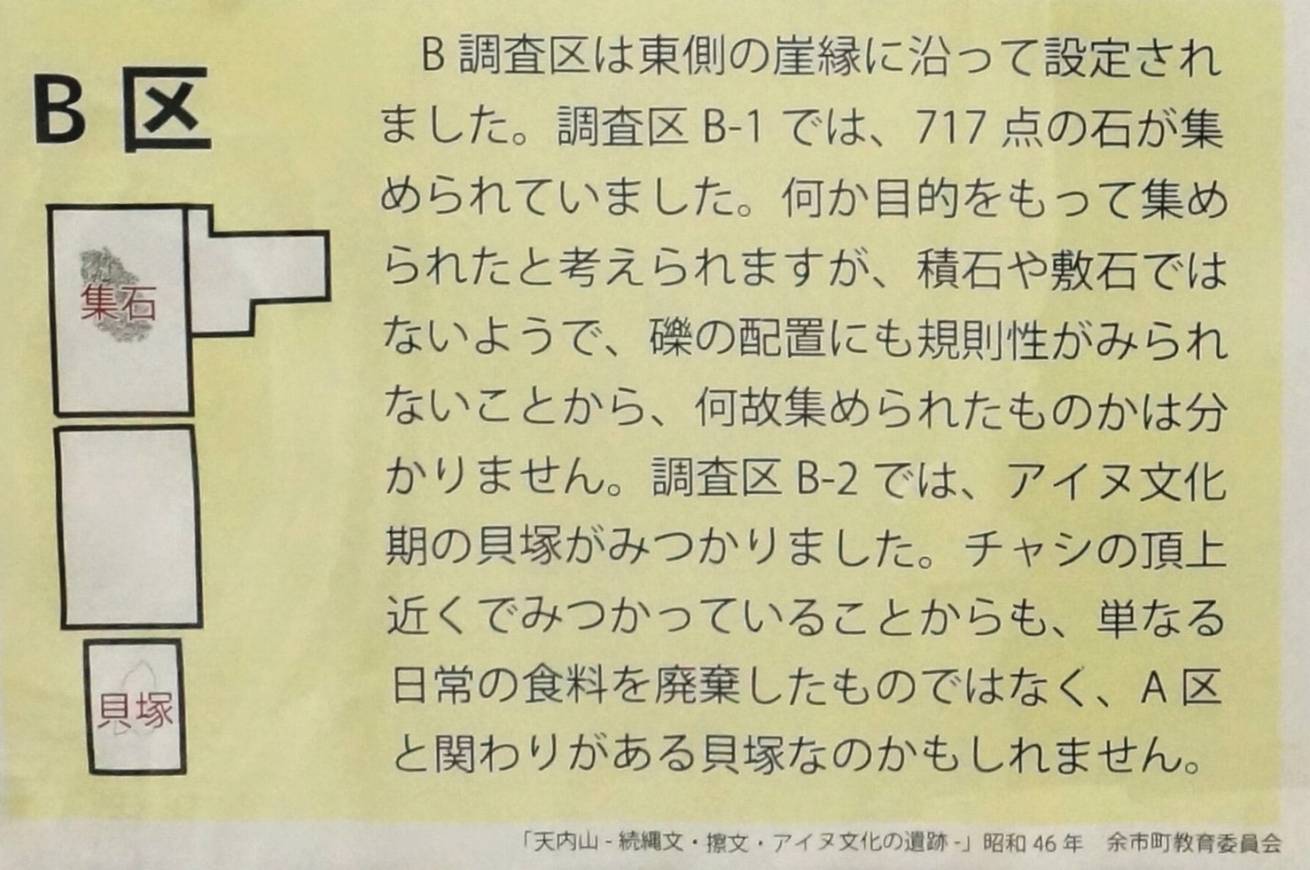 B 区
集石
貝塚
B 調査区は東側の崖縁に沿って設定され
ました。調査区 B-1 では、717 点の石が集
められていました。何か目的をもって集め
られたと考えられますが、積石や敷石では
ないようで、礫の配置にも規則性がみられ
ないことから、何故集められたものかは分
かりません。調査区 B-2 では、アイヌ文化
期の貝塚がみつかりました。チャシの頂上
近くでみつかっていることからも、単なる
日常の食料を廃棄したものではなく、A 区
と関わりがある貝塚なのかもしれません。
「天内山 - 続縄文・擦文・アイヌ文化の遺跡 -」昭和 46 年　余市町教育委員会